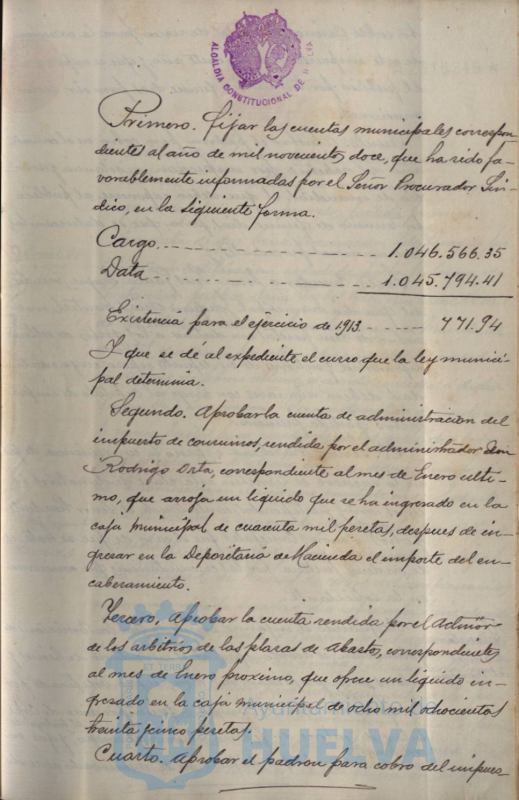 ALCALDIA CONSTITUCIONAL DE HUELVA
Primero. Fijar las cuentas municipales correspon-
dientes al año de mil novecientos doce, que ha sido fa-
vorablemente informadas por el Señor Procurador Sín-
dico, en la siguiente forma.
Cargo 1.046.566.35
Data 1.045.794.41
Existencia para el ejercicio de 1913 771.94
Y que se dé al expediente el curso que la ley munici-
pal determina.
Segundo. Aprobar la cuenta de administracion del
impuesto de consumos, rendida por el administrador Don
Rodrigo Orta, correspondiente al mes de Enero ulti-
mo, que arroja un líquido que se ha ingresado en la
caja municipal de cuarenta mil pesetas, despues de in-
gresar en la Depositaría de Hacienda el importe del en-
cabezamiento.
Tercero, Aprobar la cuenta rendida por el Admor
de los arbitrios de las plazas de Abasto, correspondientes
al mes de Enero proximo, que ofrece un líquido in-
gresado en la caja municipal de ocho mil ochocientas
treinta y cinco pesetas.
Cuarto. Aprobar el padron para cobro del impues-
Ayuntamiento de
HUELVA